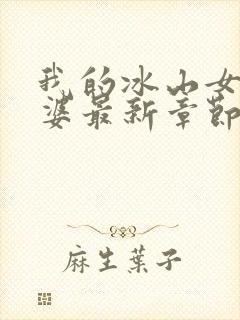 我的冰山女
婆最新章節
麻生葉子